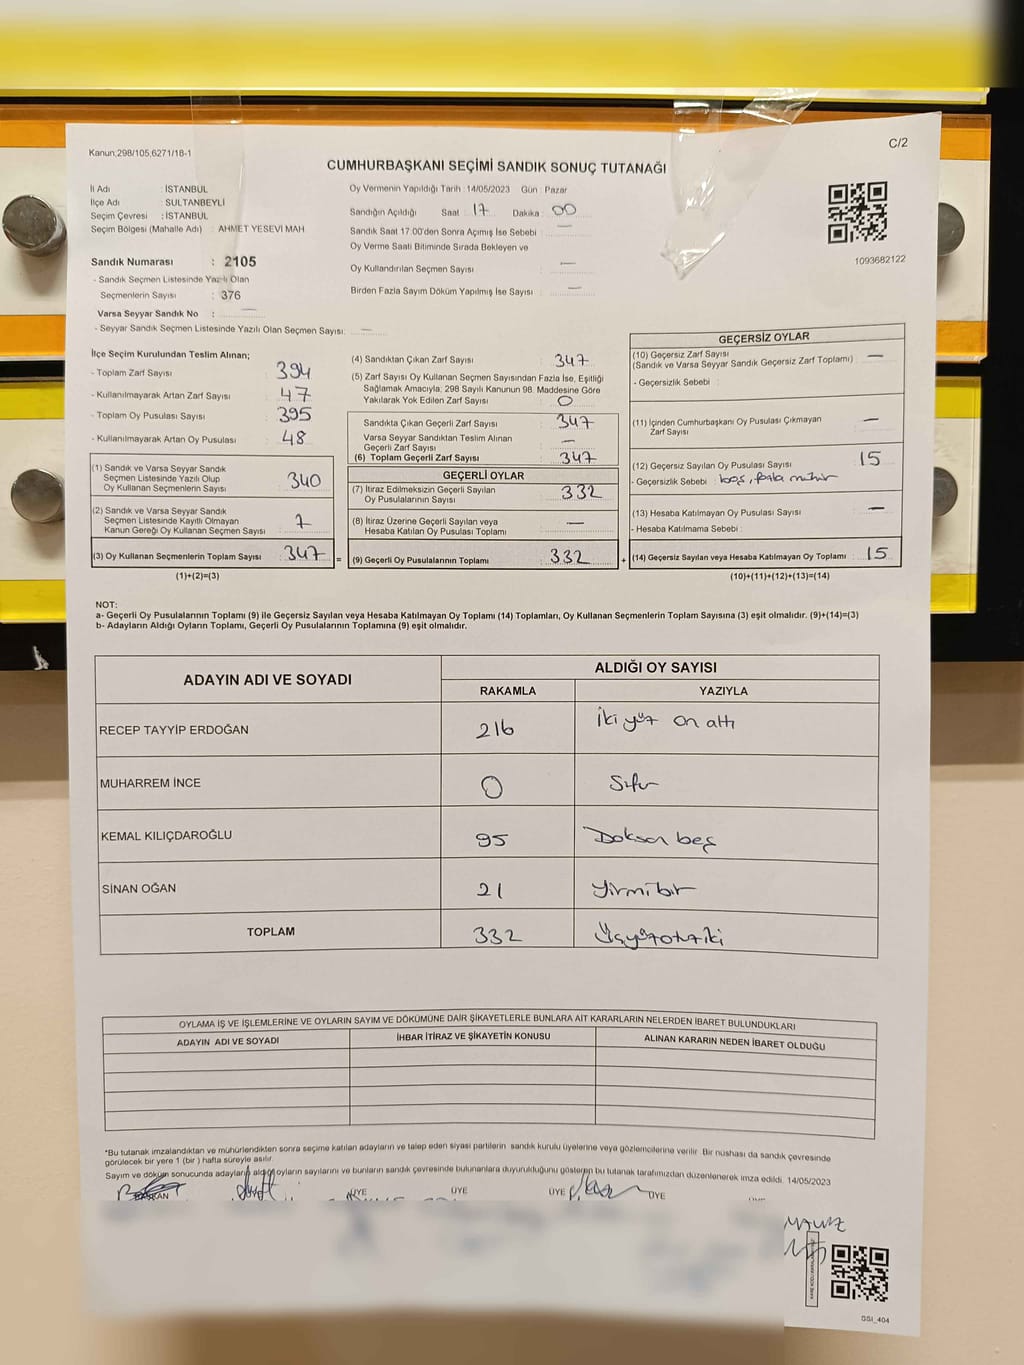 Kanun;298/105,6271/18-1
C/2
CUMHURBAŞKANI SEÇİMİ SANDIK SONUÇ TUTANAĞI
İl Adı : İSTANBUL
İlçe Adı : SULTANBEYLİ
Seçim Çevresi : İSTANBUL
Seçim Bölgesi (Mahalle Adı) : AHMET YESEVI MAH
Sandık Numarası : 2105
- Sandık Seçmen Listesinde Yazılı Olan
Seçmenlerin Sayısı : 376
Varsa Seyyar Sandık No : —
- Seyyar Sandık Seçmen Listesinde Yazılı Olan Seçmen Sayısı: —
Oy Vermenin Yapıldığı Tarih : 14/05/2023 Gün : Pazar
Sandığın Açıldığı Saat : 17 Dakika : 00
Sandık Saat 17:00'den Sonra Açımış İse Sebebi : —
Oy Verme Saati Bitiminde Sırada Bekleyen ve
Oy Kullandırılan Seçmen Sayısı : —
Birden Fazla Sayım Döküm Yapılmış İse Sayısı : —
1093682122
İlçe Seçim Kurulundan Teslim Alınan;
- Toplam Zarf Sayısı : 394
- Kullanılmayarak Artan Zarf Sayısı : 47
- Toplam Oy Pusulası Sayısı : 395
- Kullanılmayarak Artan Oy Pusulası : 48
(1) Sandık ve Varsa Seyyar Sandık
Seçmen Listesinde Yazılı Olup
Oy Kullanan Seçmenlerin Sayısı : 340
(2) Sandık ve Varsa Seyyar Sandık
Seçmen Listesinde Kayıtlı Olmayan
Kanun Gereği Oy Kullanan Seçmen Sayısı : 7
(3) Oy Kullanan Seçmenlerin Toplam Sayısı : 347 =
(1)+(2)=(3)
(4) Sandıktan Çıkan Zarf Sayısı : 347
(5) Zarf Sayısı Oy Kullanan Seçmen Sayısından Fazla İse, Eşitliği
Sağlamak Amacıyla; 298 Sayılı Kanunun 98. Maddesine Göre
Yakılarak Yok Edilen Zarf Sayısı : 0
Sandıkta Çıkan Geçerli Zarf Sayısı : 347
Varsa Seyyar Sandıktan Teslim Alınan
Geçerli Zarf Sayısı : —
(6) Toplam Geçerli Zarf Sayısı : 347
GEÇERLİ OYLAR
(7) İtiraz Edilmeksizin Geçerli Sayılan
Oy Pusulalarının Sayısı : 332
(8) İtiraz Üzerine Geçerli Sayılan veya
Hesaba Katılan Oy Pusulası Toplamı : —
(9) Geçerli Oy Pusulalarının Toplamı : 332 +
GEÇERSİZ OYLAR
(10) Geçersiz Zarf Sayısı : —
(Sandık ve Varsa Seyyar Sandık Geçersiz Zarf Toplamı)
- Geçersizlik Sebebi :
(11) İçinden Cumhurbaşkanı Oy Pusulası Çıkmayan
Zarf Sayısı : —
(12) Geçersiz Sayılan Oy Pusulası Sayısı : 15
- Geçersizlik Sebebi : boş, fazla mühür
(13) Hesaba Katılmayan Oy Pusulası Sayısı : —
- Hesaba Katılmama Sebebi :
(14) Geçersiz Sayılan veya Hesaba Katılmayan Oy Toplamı : 15
(10)+(11)+(12)+(13)=(14)
NOT:
a- Geçerli Oy Pusulalarının Toplamı (9) ile Geçersiz Sayılan veya Hesaba Katılmayan Oy Toplamı (14) Toplamları, Oy Kullanan Seçmenlerin Toplam Sayısına (3) eşit olmalıdır. (9)+(14)=(3)
b- Adayların Aldığı Oyların Toplamı, Geçerli Oy Pusulalarının Toplamına (9) eşit olmalıdır.
ADAYIN ADI VE SOYADI
ALDIĞI OY SAYISI
RAKAMLA YAZIYLA
RECEP TAYYİP ERDOĞAN 216 İki yüz on altı
MUHARREM İNCE 0 Sıfır
KEMAL KILIÇDAROĞLU 95 Doksan beş
SİNAN OĞAN 21 Yirmibir
TOPLAM 332 Üçyüzotuziki
OYLAMA İŞ VE İŞLEMLERİNE VE OYLARIN SAYIM VE DÖKÜMÜNE DAİR ŞİKAYETLERLE BUNLARA AİT KARARLARIN NELERDEN İBARET BULUNDUKLARI
ADAYIN ADI VE SOYADI
İHBAR İTİRAZ VE ŞİKAYETİN KONUSU
ALINAN KARARIN NEDEN İBARET OLDUĞU
*Bu tutanak imzalandıktan ve mühürlendikten sonra seçime katılan adayların ve talep eden siyasi partilerin sandık kurulu üyelerine veya gözlemcilerine verilir. Bir nüshası da sandık çevresinde
görülecek bir yere 1 (bir ) hafta süreyle asılır.
Sayım ve döküm sonucunda adayların aldığı oyların sayılarını ve bunların sandık çevresinde bulunanlara duyurulduğunu gösteren bu tutanak tarafımızdan düzenlenerek imza edildi. 14/05/2023
BAŞKAN ÜYE ÜYE ÜYE ÜYE